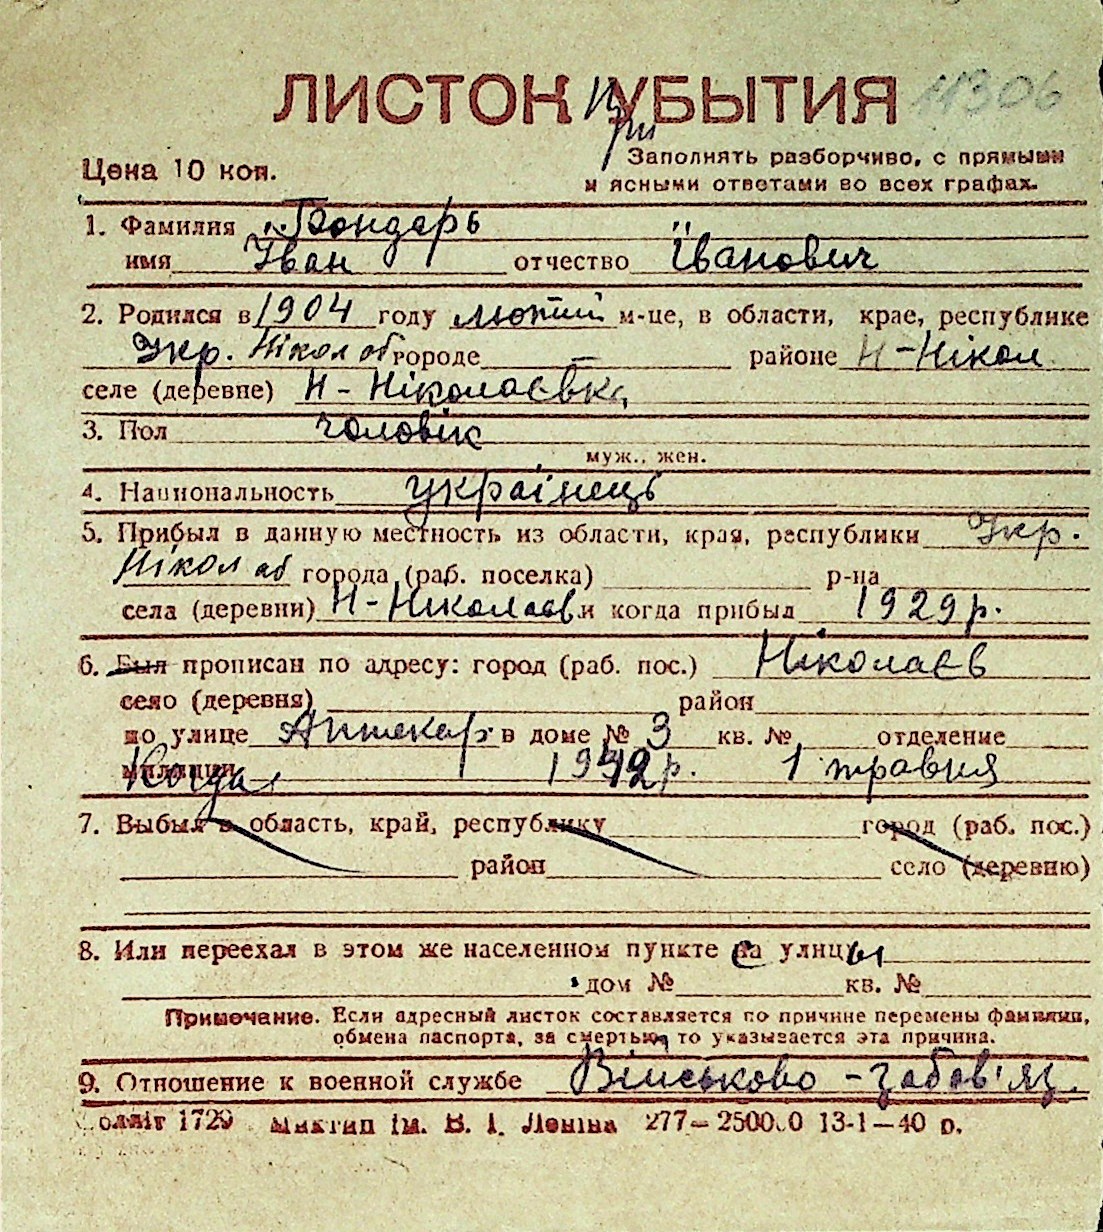 ЛИСТОК При УБЫТИЯ 11306
Цена 10 коп.
Заполнять разборчиво, с прямыми
и ясными ответами во всех графах.
1. Фамилия Бондарь
имя Іван отчество Іванович
2. Родился в 1904 году лютий м-це, в области, крае, республике
Укр. Нікол об городе — районе Н-Нікол
селе (деревне) Н-Ніколаєвка
3. Пол чоловік
муж., жен.
4. Национальность українець
5. Прибыл в данную местность из области, края, республики Укр.
Нікол об города (раб. поселка) р-на
села (деревни) Н-Ніколаєв. и когда прибыл 1929 р.
6. Был прописан по адресу: город (раб. пос.) Ніколаєв
село (деревня) район
по улице Аптекар в доме № 3 кв. № отделение
милиции Когда 1942 р. 1 травня
7. Выбыл в область, край, республику город (раб. пос.)
район село (деревню)
8. Или переехал в этом же населенном пункте с улицы
дом № кв. №
Примечание. Если адресный листок составляется по причине перемены фамилии,
обмена паспорта, за смертью, то указывается эта причина.
9. Отношение к военной службе Військово-забов'яз.
олліг 1729 Миктип ім. В. І. Леніна 277—25000 13-1—40 р.